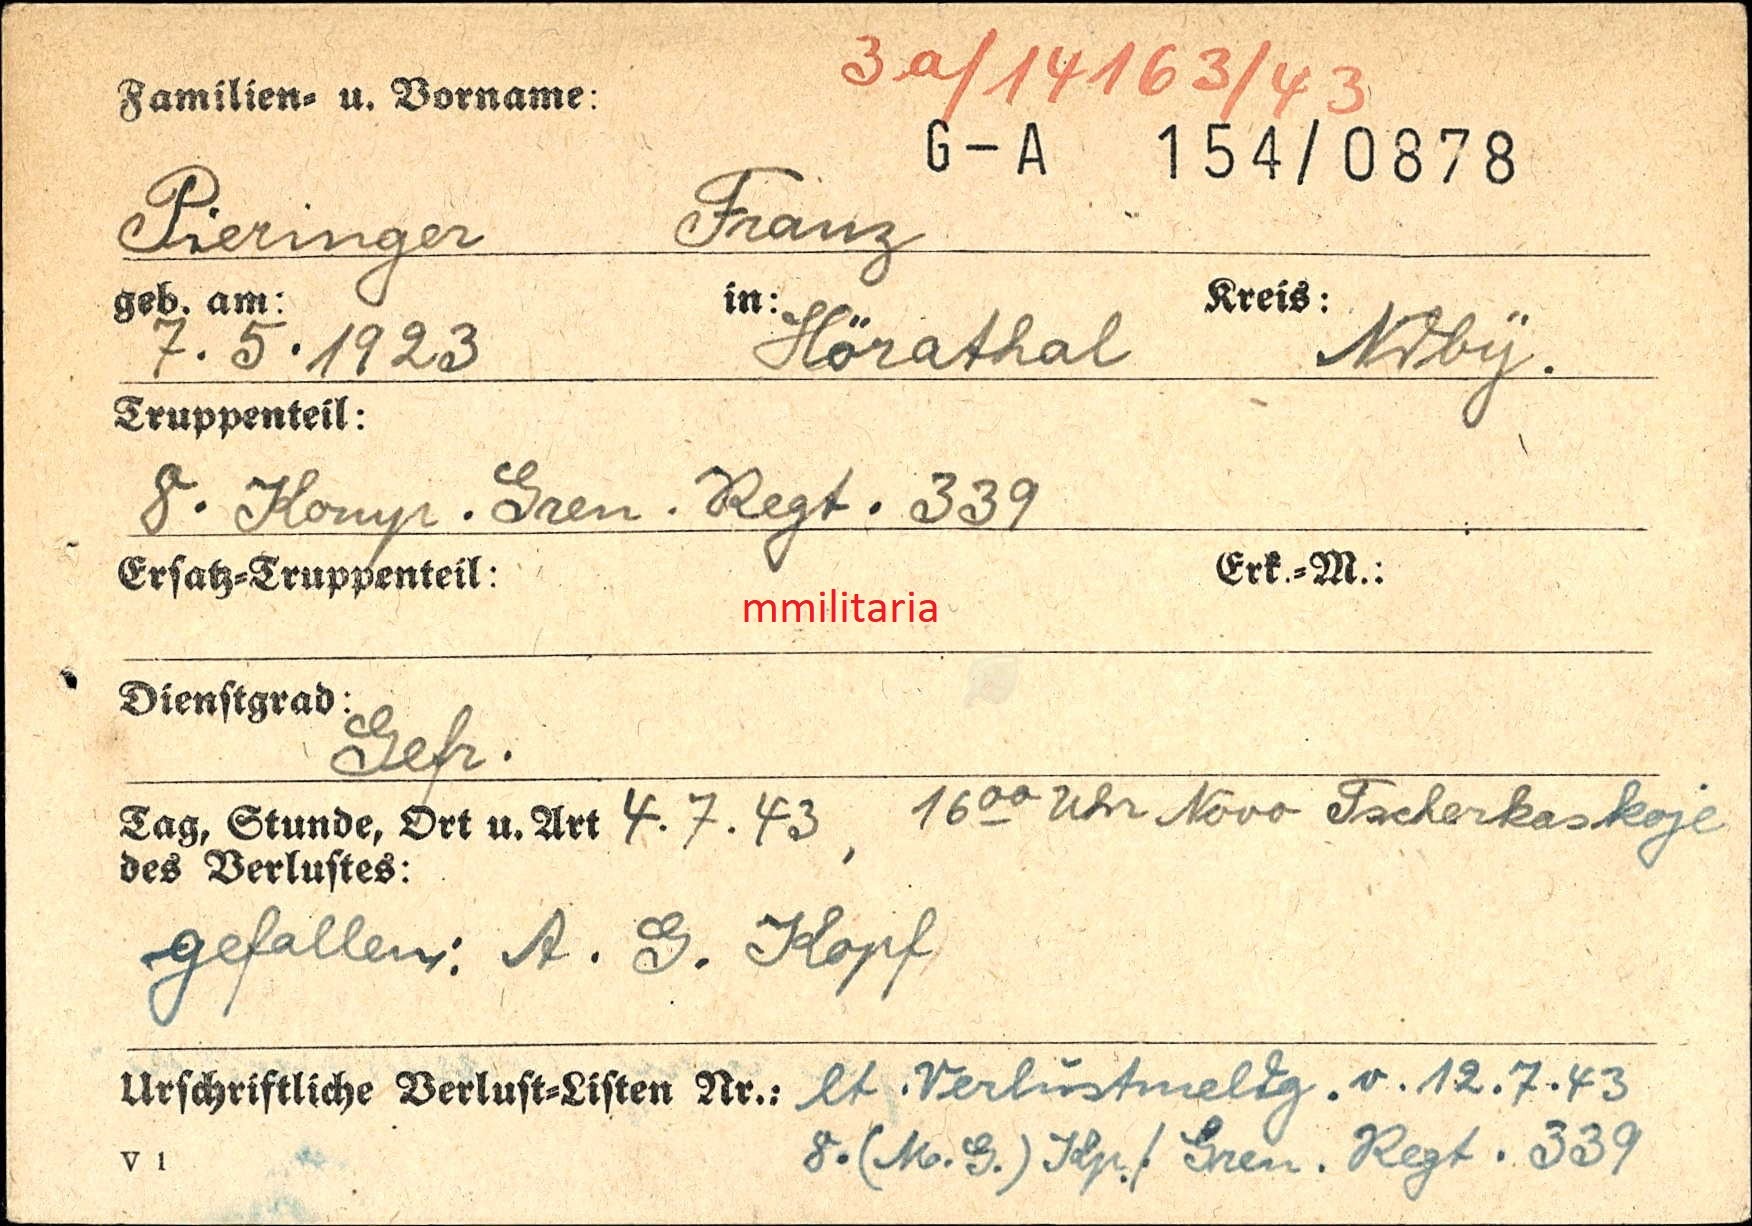 3a/14163/43
Familien- u. Vorname:
G-A 154/0878
Pieringer Franz
geb. am: in: Kreis:
7.5.1923 Hörathal Ndby.
Truppenteil:
8. Komp. Gren. Regt. 339
Ersatz-Truppenteil: Erk.-M.:
mmilitaria
Dienstgrad:
Gefr.
Tag, Stunde, Ort u. Art 4.7.43, 16⁰⁰ Uhr Novo Tscherkaskoje
des Verlustes:
gefallen: A. G. Kopf
Urschriftliche Verlust-Listen Nr.: lt. Verlustmeldg. v. 12.7.43
V 1 8. (M.G.) Kp./ Gren. Regt. 339